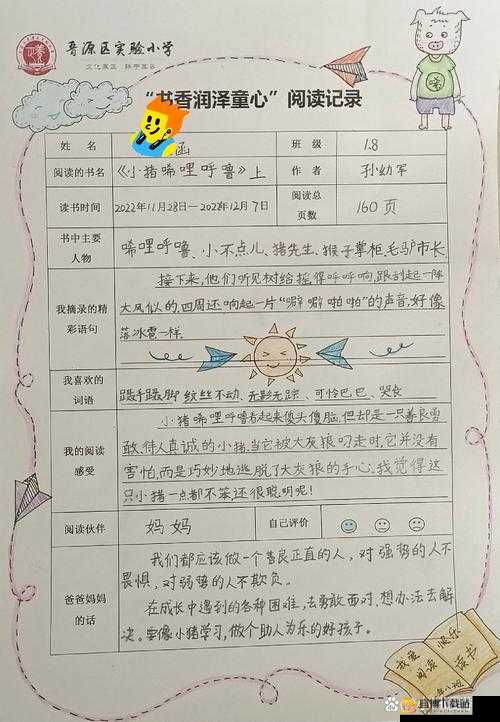 晋源区实验小学
“书香润泽童心”阅读记录
姓 名 涵 班 级 1.8
阅读的书名 《小猪唏哩呼噜》上 作 者 孙幼军
读书时间 2022年11月28日—2022年12月7日 阅读总页数 160页
书中主要人物 唏哩呼噜、小不点儿、猪先生、猴子掌柜、毛驴市长
我摘录的精彩语句 接下来,他们听见树给摇得呼呼响,跟刮起一阵
大风似的,四周还响起一片“噼噼啪啪”的声音,好像
落冰雹一样。
我喜欢的词语 蹑手蹑脚 纹丝不动、无影无踪、可怜巴巴、哭丧
我的阅读感受 小猪唏哩呼噜看起来傻头傻脑,但却是一只善良勇
敢、待人真诚的小猪,当它被大灰狼叼走时,它并没有
害怕,而是巧妙地逃脱了大灰狼的手心,我觉得这
只小猪一点都不笨还很聪明呢!
阅读伙伴 妈妈 自己评价
爸爸妈妈的话 我们都应该做一个善良正直的人,对强势的人不
畏惧,对弱势的人不欺负。
在成长中遇到的各种困难,去勇敢面对,想办法去解
决。要像小猪学习,做个助人为乐的好孩子。
我爱阅读
快乐读书